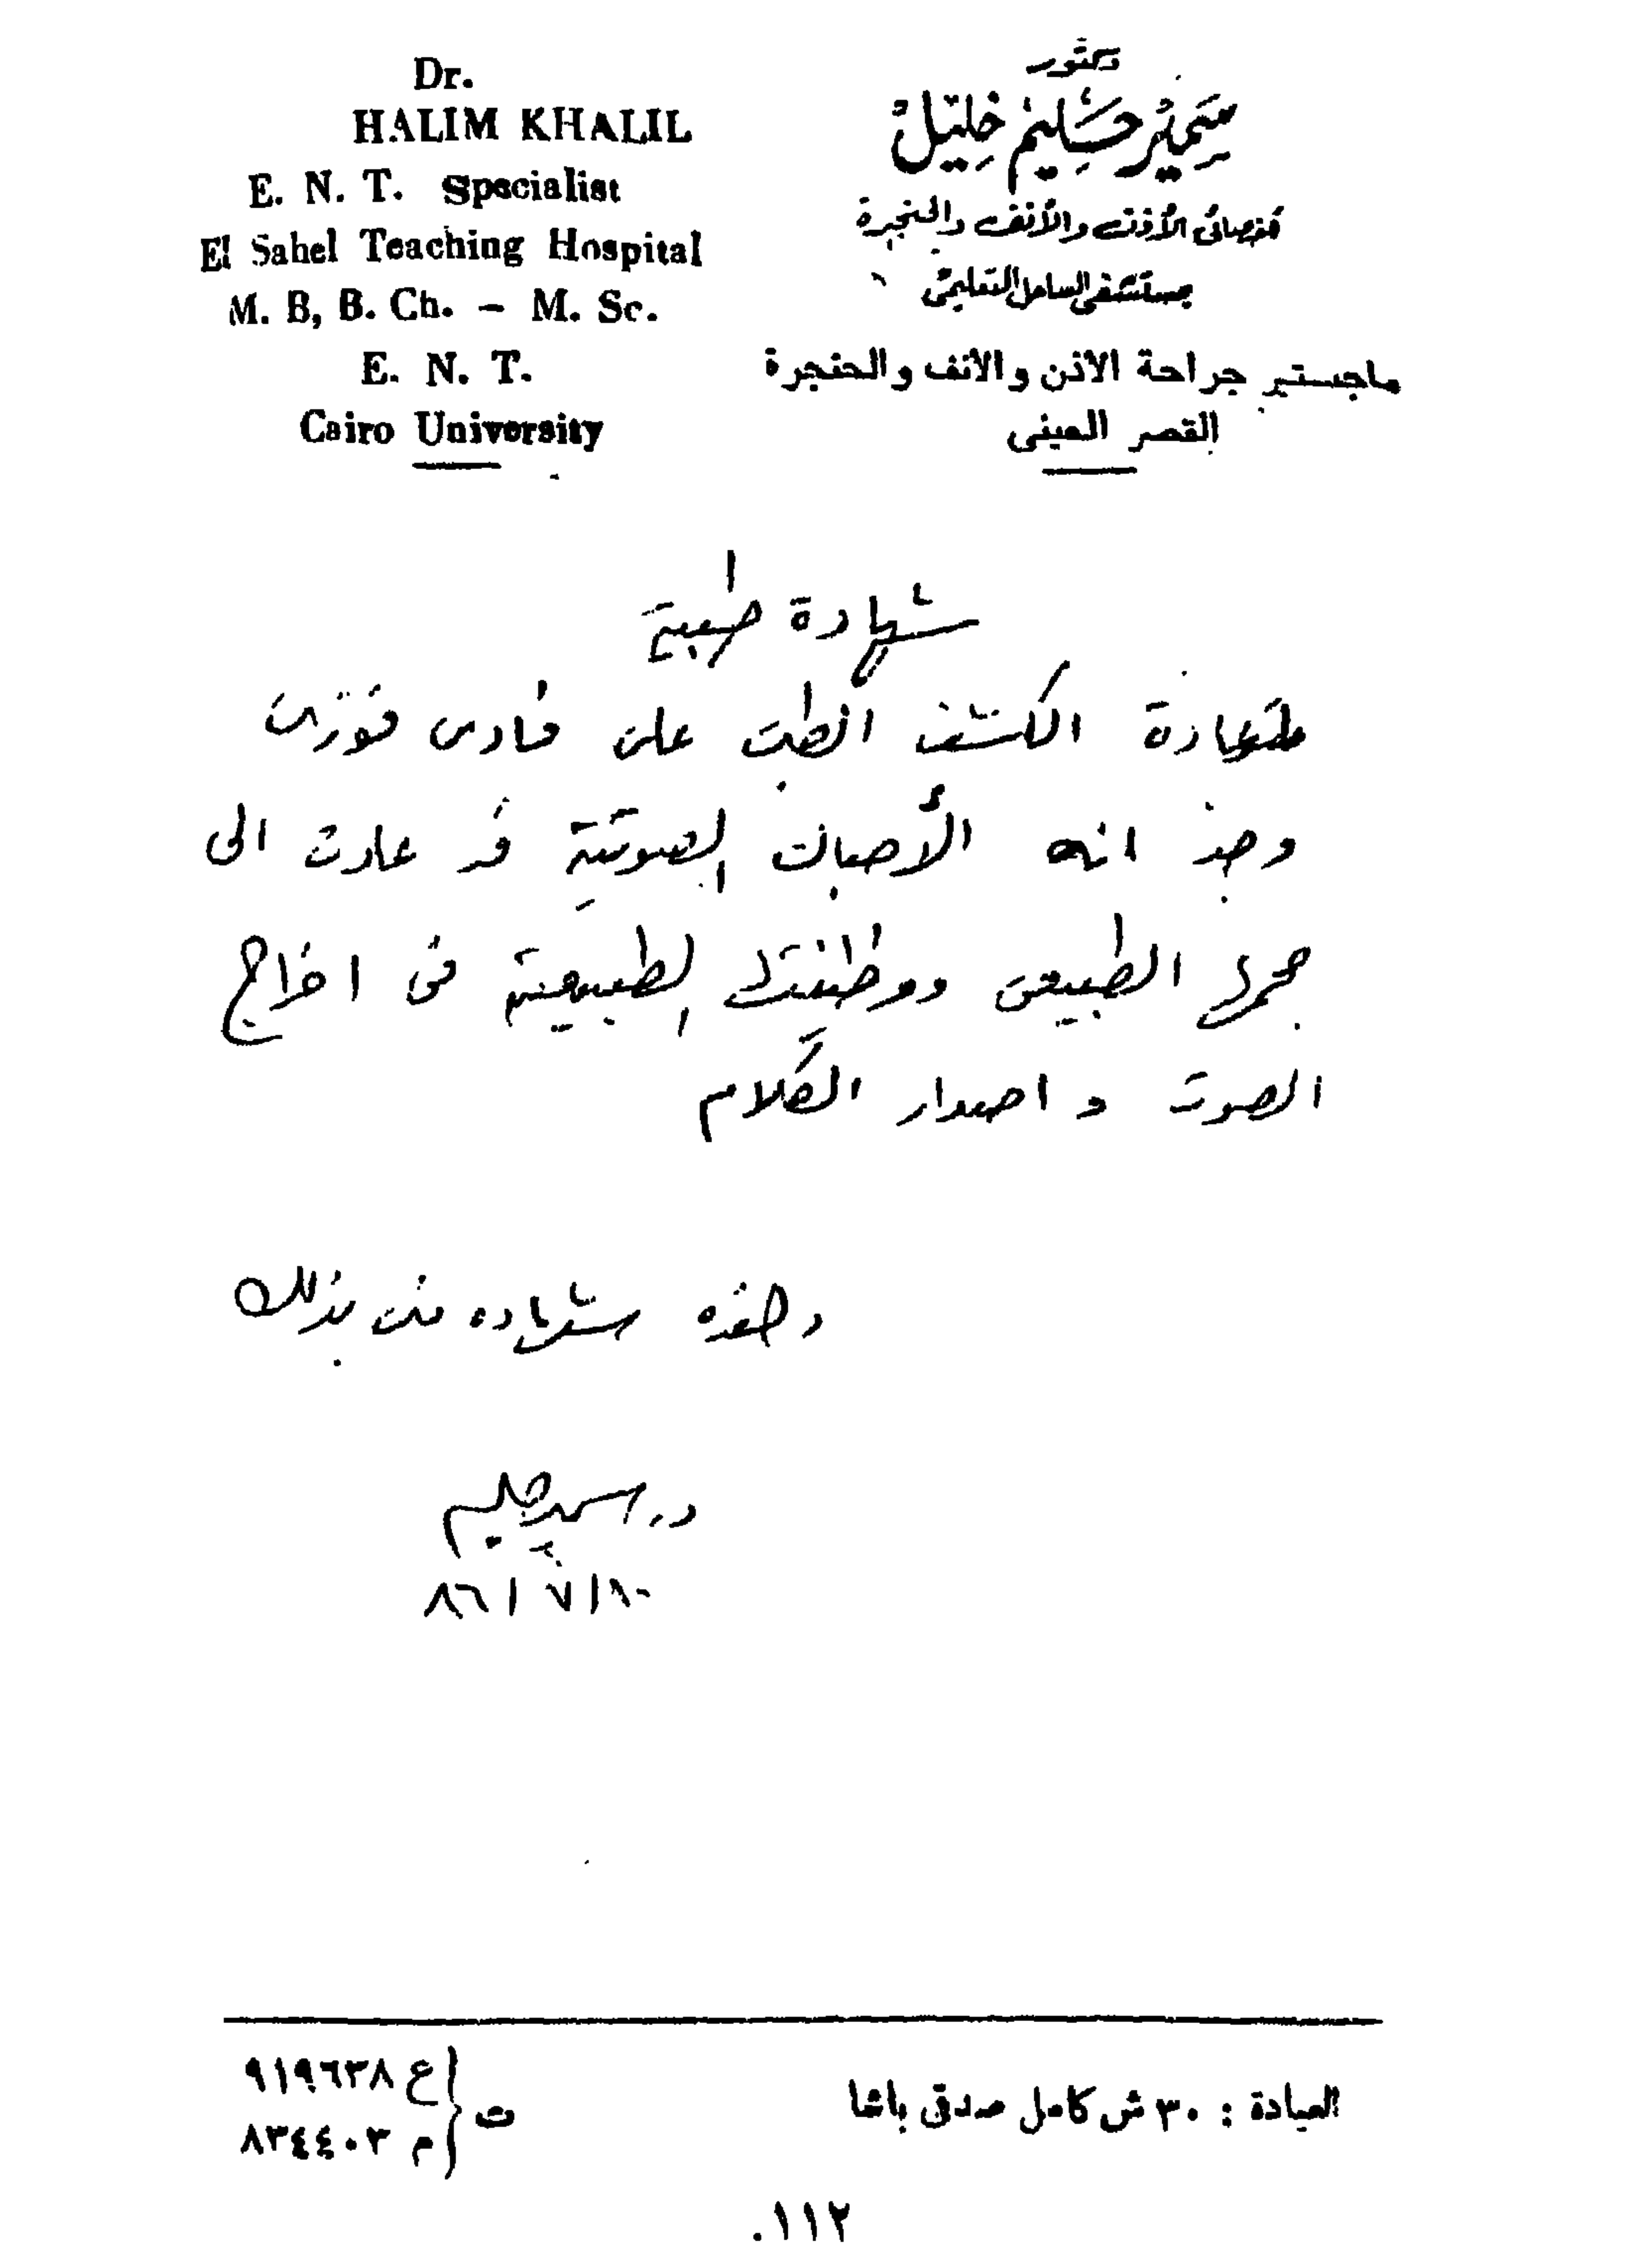 Dr.
HALIM KHALIL
E. N. T. Specialist
El Sahel Teaching Hospital
M. B, B. Ch. – M. Sc.
E. N. T.
Cairo University
دكتور
سمير حليم خليل
أخصائى الأذن والأنف والحنجرة
بمستشفى الساحل التعليمى
ماجستير جراحة الاذن والانف والحنجرة
القصر العينى
شهادة طبية
الكشف الطبى على فادى فوزى
وجد ان الأحبال الصوتية قد عادت الى
حجمها الطبيعى ووظيفتها الطبيعية فى اخراج
الصوت و اصدار الكلام
وهذه شهاده منى بذلك
د. سمير حليم
٨٦/٧/١٠
العيادة : ٣٠ ش كامل صدقى باشا
ت
ع ٩١٩٦٣٨
م ٨٣٤٤٠٣
١١٢.